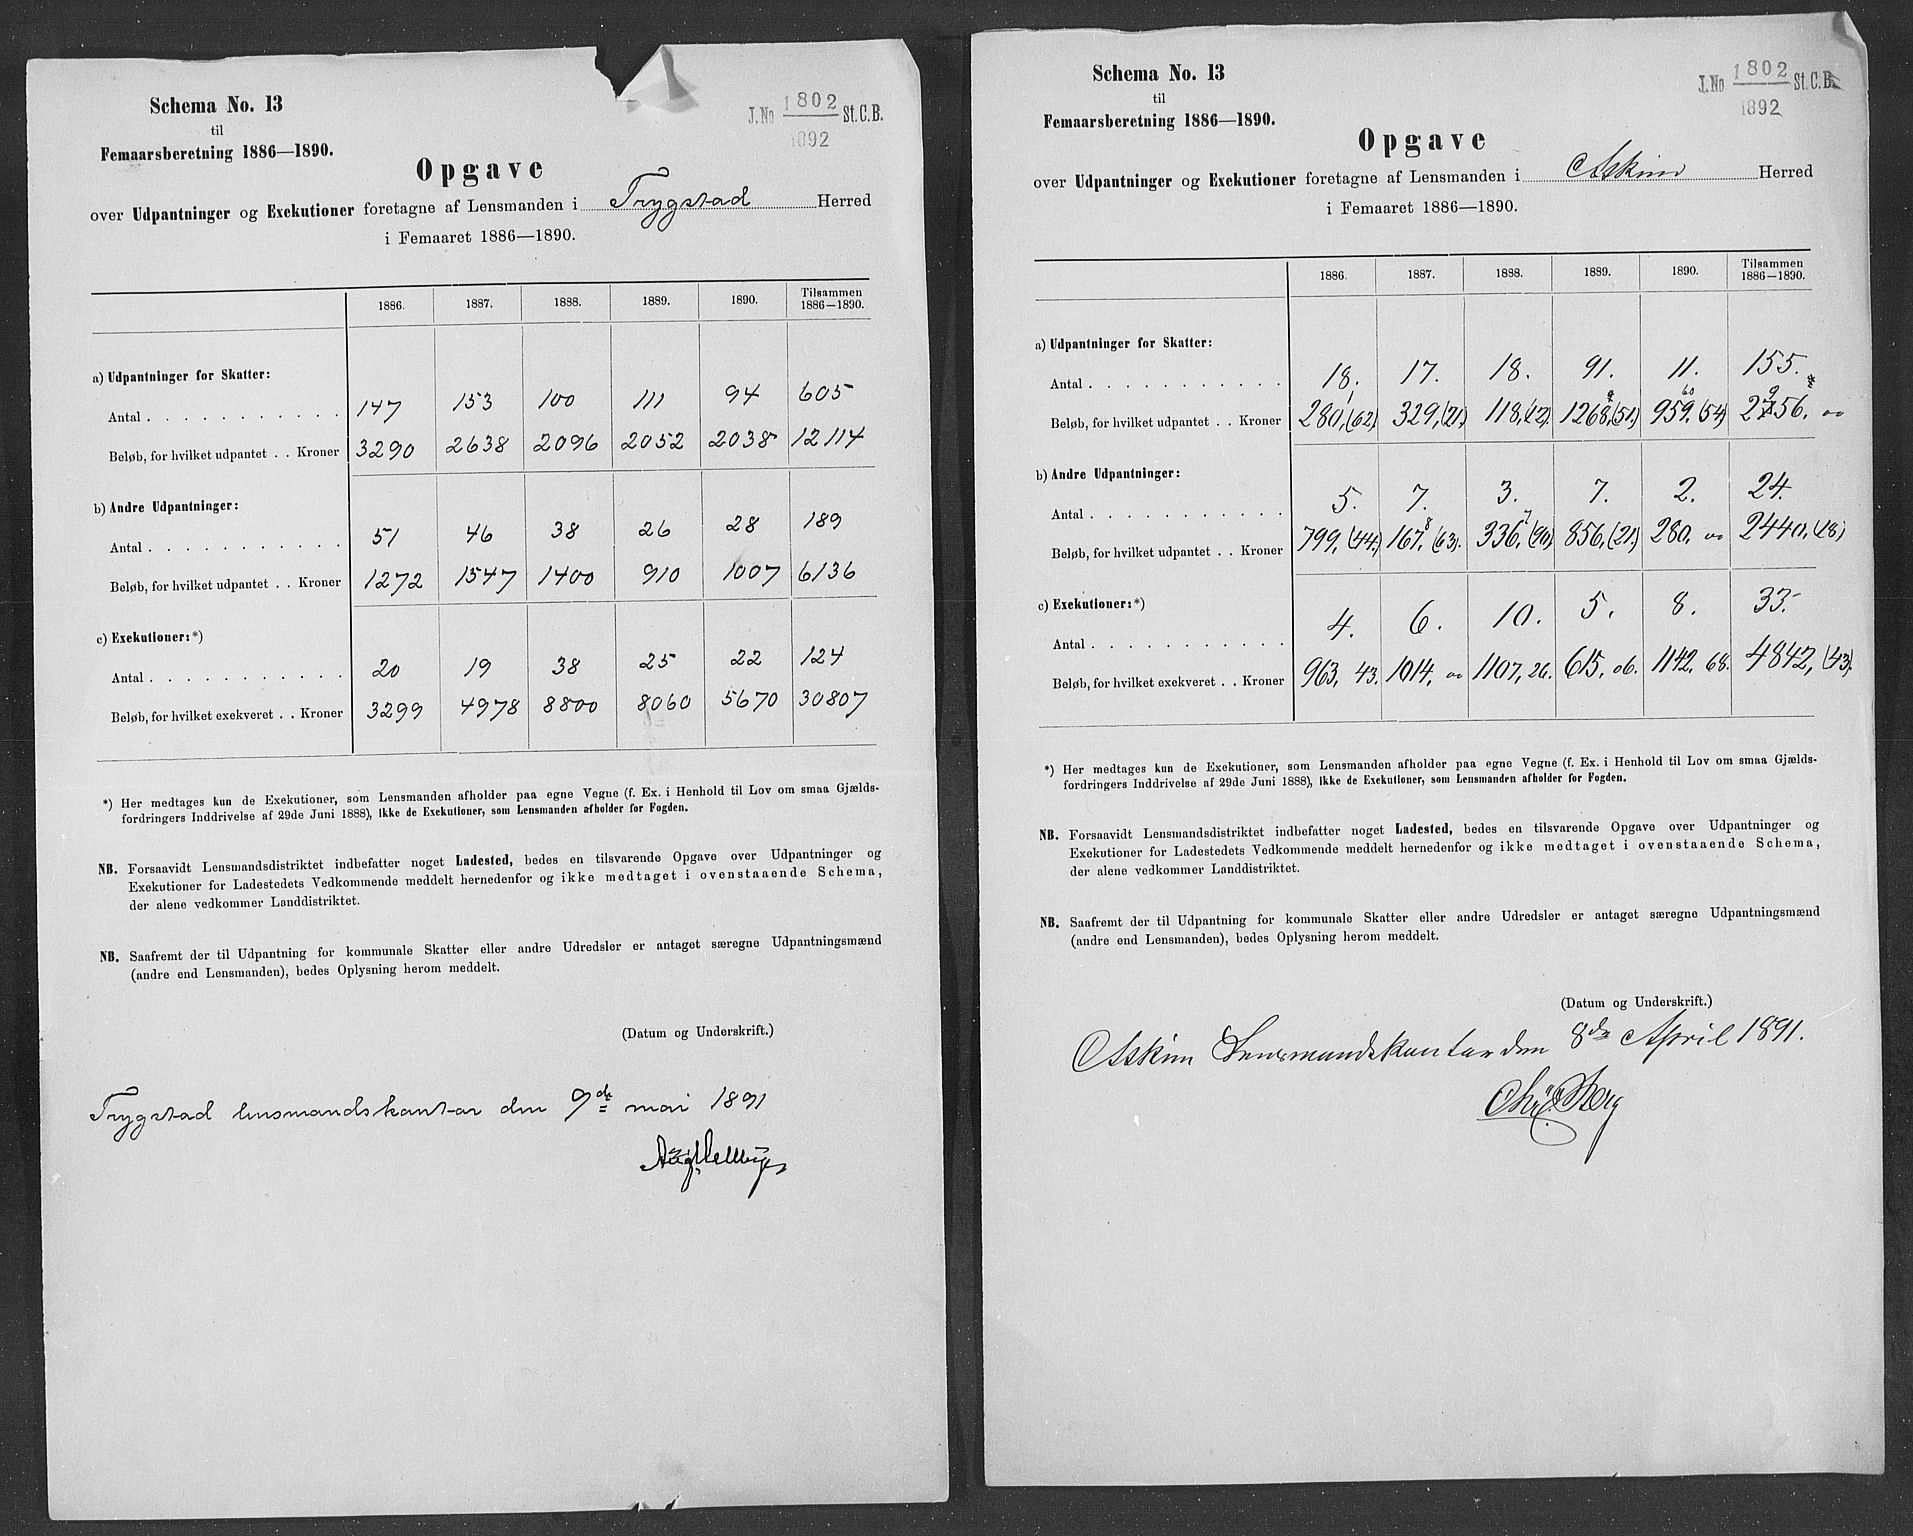 Schema No. 13
til
Femaarsberetning 1886—1890.
J. No 1802 St. C. B.
1892
Opgave
over Udpantninger og Exekutioner foretagne af Lensmanden i Trygstad Herred
i Femaaret 1886—1890.
1886. 1887. 1888. 1889. 1890. Tilsammen 1886—1890.
a) Udpantninger for Skatter:
Antal . . . . . . . . . . . 147 153 100 111 94 605
Beløb, for hvilket udpantet . . Kroner 3290 2638 2096 2052 2038 12114
b) Andre Udpantninger:
Antal . . . . . . . . . . . 51 46 38 26 28 189
Beløb, for hvilket udpantet . . Kroner 1272 1547 1400 910 1007 6136
c) Exekutioner:*)
Antal . . . . . . . . . . . 20 19 38 25 22 124
Beløb, for hvilket exekveret . . Kroner 3299 4978 8800 8060 5670 30807
*) Her medtages kun de Exekutioner, som Lensmanden afholder paa egne Vegne (f. Ex. i Henhold til Lov om smaa Gjælds-
fordringers Inddrivelse af 29de Juni 1888), ikke de Exekutioner, som Lensmanden afholder for Fogden.
NB. Forsaavidt Lensmandsdistriktet indbefatter noget Ladested, bedes en tilsvarende Opgave over Udpantninger og
Exekutioner for Ladestedets Vedkommende meddelt hernedenfor og ikke medtaget i ovenstaaende Schema,
der alene vedkommer Landdistriktet.
NB. Saafremt der til Udpantning for kommunale Skatter eller andre Udredsler er antaget særegne Udpantningsmænd
(andre end Lensmanden), bedes Oplysning herom meddelt.
(Datum og Underskrift.)
Trygstad lensmandskontor den 9de mai 1891
Schema No. 13
til
Femaarsberetning 1886—1890.
J. No 1802 St. C. B.
1892
Opgave
over Udpantninger og Exekutioner foretagne af Lensmanden i Askim Herred
i Femaaret 1886—1890.
1886. 1887. 1888. 1889. 1890. Tilsammen 1886—1890.
a) Udpantninger for Skatter:
Antal . . . . . . . . . . . 18. 17. 18. 91. 11. 155.
Beløb, for hvilket udpantet . . Kroner 280,(62) 329,(21.) 118,(12). 1268,(51.) 959,(54) 2956. oo
b) Andre Udpantninger:
Antal . . . . . . . . . . . 5. 7. 3. 7. 2. 24.
Beløb, for hvilket udpantet . . Kroner 799,(44.) 167,(63). 336,(90) 856,(21.) 280, oo 2440,(18)
c) Exekutioner:*)
Antal . . . . . . . . . . . 4. 6. 10. 5. 8. 33.
Beløb, for hvilket exekveret . . Kroner 963, 43. 1014, oo 1107, 26. 615, 06. 1142, 68. 4842,(43).
*) Her medtages kun de Exekutioner, som Lensmanden afholder paa egne Vegne (f. Ex. i Henhold til Lov om smaa Gjælds-
fordringers Inddrivelse af 29de Juni 1888), ikke de Exekutioner, som Lensmanden afholder for Fogden.
NB. Forsaavidt Lensmandsdistriktet indbefatter noget Ladested, bedes en tilsvarende Opgave over Udpantninger og
Exekutioner for Ladestedets Vedkommende meddelt hernedenfor og ikke medtaget i ovenstaaende Schema,
der alene vedkommer Landdistriktet.
NB. Saafremt der til Udpantning for kommunale Skatter eller andre Udredsler er antaget særegne Udpantningsmænd
(andre end Lensmanden), bedes Oplysning herom meddelt.
(Datum og Underskrift.)
Askim Lensmandskontor den 8de April 1891.